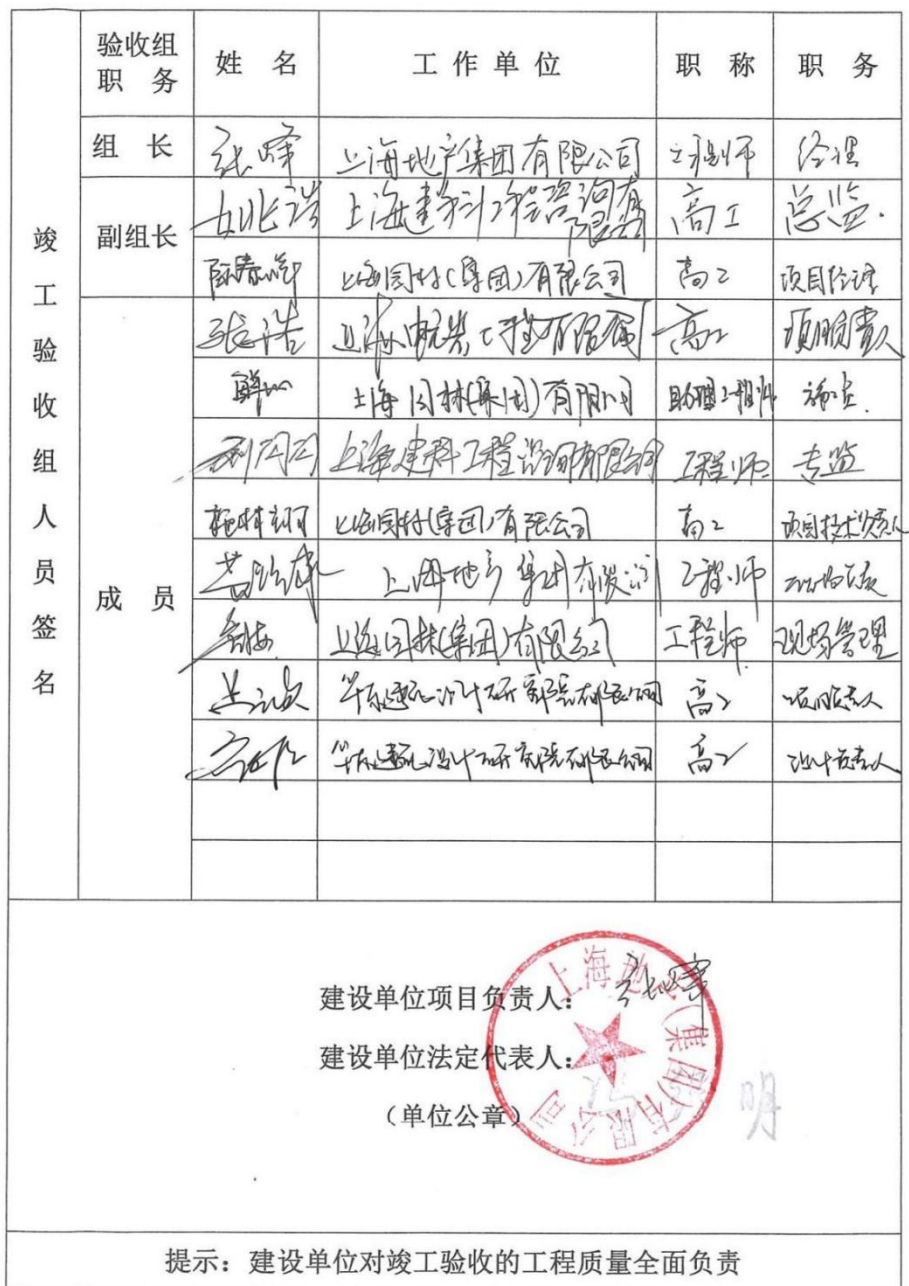 验收组职 务 姓 名 工 作 单 位 职 称 职 务
竣工验收组人员签名
组 长 张峰 上海地产集团有限公司 工程师 经理
副组长 上海建科工程咨询有限公司 高工 总监.
上海园林(集团)有限公司 高工 项目经理
成 员 张浩 高工
上海园林(集团)有限公司 助理工程师
上海建科工程咨询有限公司 工程师 专监
上海园林(集团)有限公司 高工 项目技术负责人
上海地产集团有限公司 工程师
上海园林(集团)有限公司 工程师 现场管理
华东建筑设计研究院有限公司 高工
华东建筑设计研究院有限公司 高工 设计负责人
建设单位项目负责人: 张峰
建设单位法定代表人:
(单位公章)
上海地产(集团)有限公司
明
提示：建设单位对竣工验收的工程质量全面负责